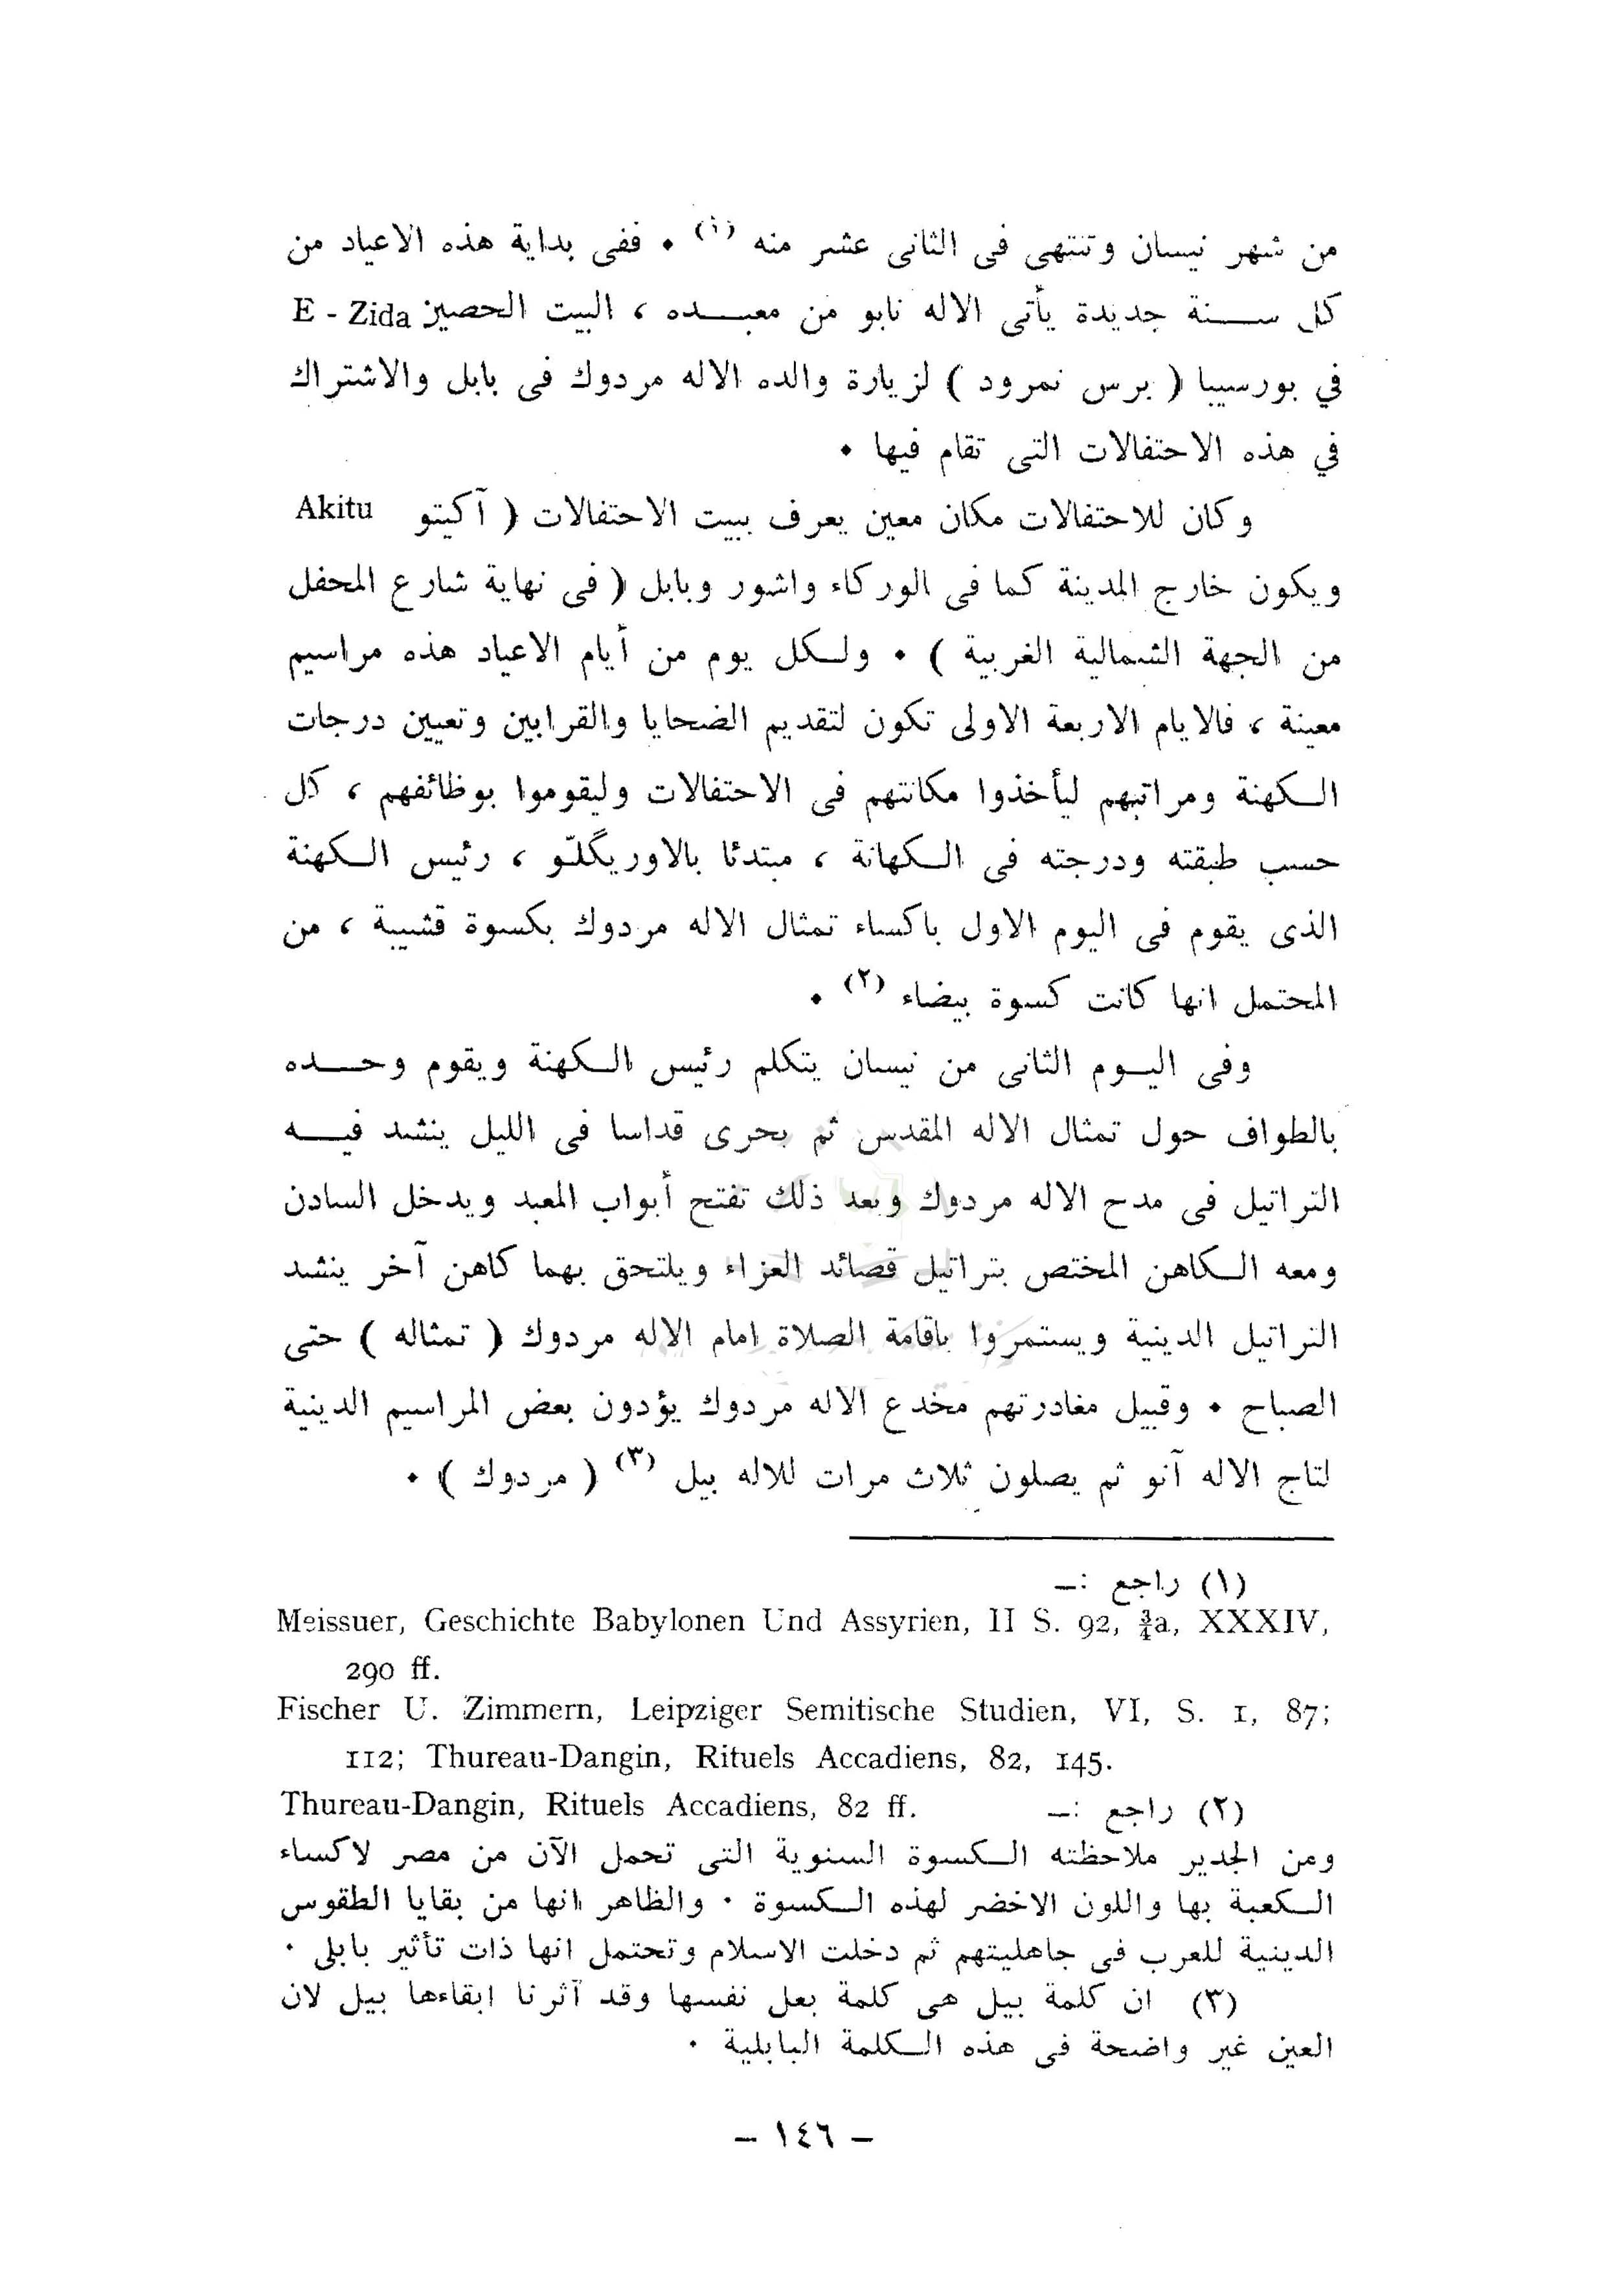 من شهر نيسان وتنتهى فى الثانى عشر منه (١) • ففى بداية هذه الاعياد من
كل ســـنة جديدة يأتى الاله نابو من معبـــده ، البيت الحصين E - Zida
في بورسيبا ( برس نمرود ) لزيارة والده الاله مردوك فى بابل والاشتراك
في هذه الاحتفالات التى تقام فيها •
وكان للاحتفالات مكان معين يعرف ببيت الاحتفالات ( آكيتو Akitu
ويكون خارج المدينة كما فى الوركاء واشور وبابل ( فى نهاية شارع المحفل
من الجهة الشمالية الغربية ) • ولـكل يوم من أيام الاعياد هذه مراسيم
معينة ، فالايام الاربعة الاولى تكون لتقديم الضحايا والقرابين وتعيين درجات
الـكهنة ومراتبهم ليأخذوا مكانتهم فى الاحتفالات وليقوموا بوظائفهم ، كل
حسب طبقته ودرجته فى الـكهانة ، مبتدئا بالاوريگلّو ، رئيس الـكهنة
الذى يقوم فى اليوم الاول باكساء تمثال الاله مردوك بكسوة قشيبة ، من
المحتمل انها كانت كسوة بيضاء (٢) •
وفى اليــوم الثانى من نيسان يتكلم رئيس الـكهنة ويقوم وحـــده
بالطواف حول تمثال الاله المقدس ثم يحرى قداسا فى الليل ينشد فيـــه
التراتيل فى مدح الاله مردوك وبعد ذلك تفتح أبواب المعبد ويدخل السادن
ومعه الـكاهن المختص بتراتيل قصائد العزاء ويلتحق بهما كاهن آخر ينشد
التراتيل الدينية ويستمروا باقامة الصلاة امام الاله مردوك ( تمثاله ) حتى
الصباح • وقبيل مغادرتهم مخدع الاله مردوك يؤدون بعض المراسيم الدينية
لتاج الاله آنو ثم يصلون ثلاث مرات للاله بيل (٣) ( مردوك ) •
(١) راجع :–
Meissuer, Geschichte Babylonen Und Assyrien, II S. 92, ¾a, XXXIV,
290 ff.
Fischer U. Zimmern, Leipziger Semitische Studien, VI, S. 1, 87;
112; Thureau-Dangin, Rituels Accadiens, 82, 145.
(٢) راجع :– Thureau-Dangin, Rituels Accadiens, 82 ff.
ومن الجدير ملاحظته الـكسوة السنوية التى تحمل الآن من مصر لاكساء
الـكعبة بها واللون الاخضر لهذه الـكسوة • والظاهر انها من بقايا الطقوس
الدينية للعرب فى جاهليتهم ثم دخلت الاسلام وتحتمل انها ذات تأثير بابلى •
(٣) ان كلمة بيل هى كلمة بعل نفسها وقد آثرنا ابقاءها بيل لان
العين غير واضحة فى هذه الـكلمة البابلية •
– ١٤٦ –